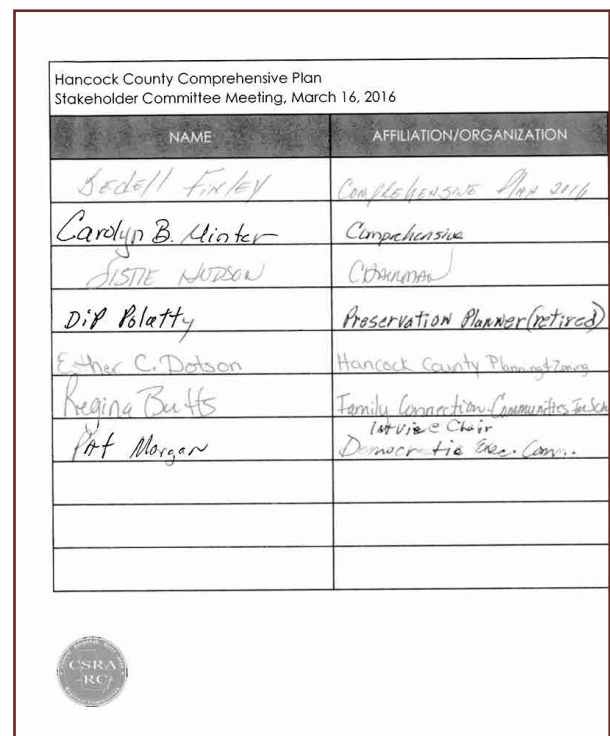 Hancock County Comprehensive Plan
Stakeholder Committee Meeting, March 16, 2016
NAME AFFILIATION/ORGANIZATION
Bedell Finley Comprehensive Plan 2016
Carolyn B. Minter Comprehensive
Sistie Hudson Chairman
Dip Polatty Preservation Planner (retired)
Esther C. Dotson Hancock County Planning & Zoning
Regina Butts Family Connection-Communities In Sch
1st vice Chair
Pat Morgan Democratic Exec. Comm.
CSRA
RC